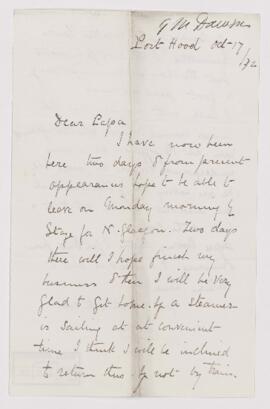 G M Dawson
Port Hood Oct 17
/72
Dear Papa
I have now been
here two days & from present
appearances hope to be able to
leave on Monday morning by
Stage for N. Glasgow. Two days
there will I hope finish my
business & then I will be very
glad to get home. If a Steamer
is sailing at at convenient
time I think I will be inclined
to return thus if not by train.